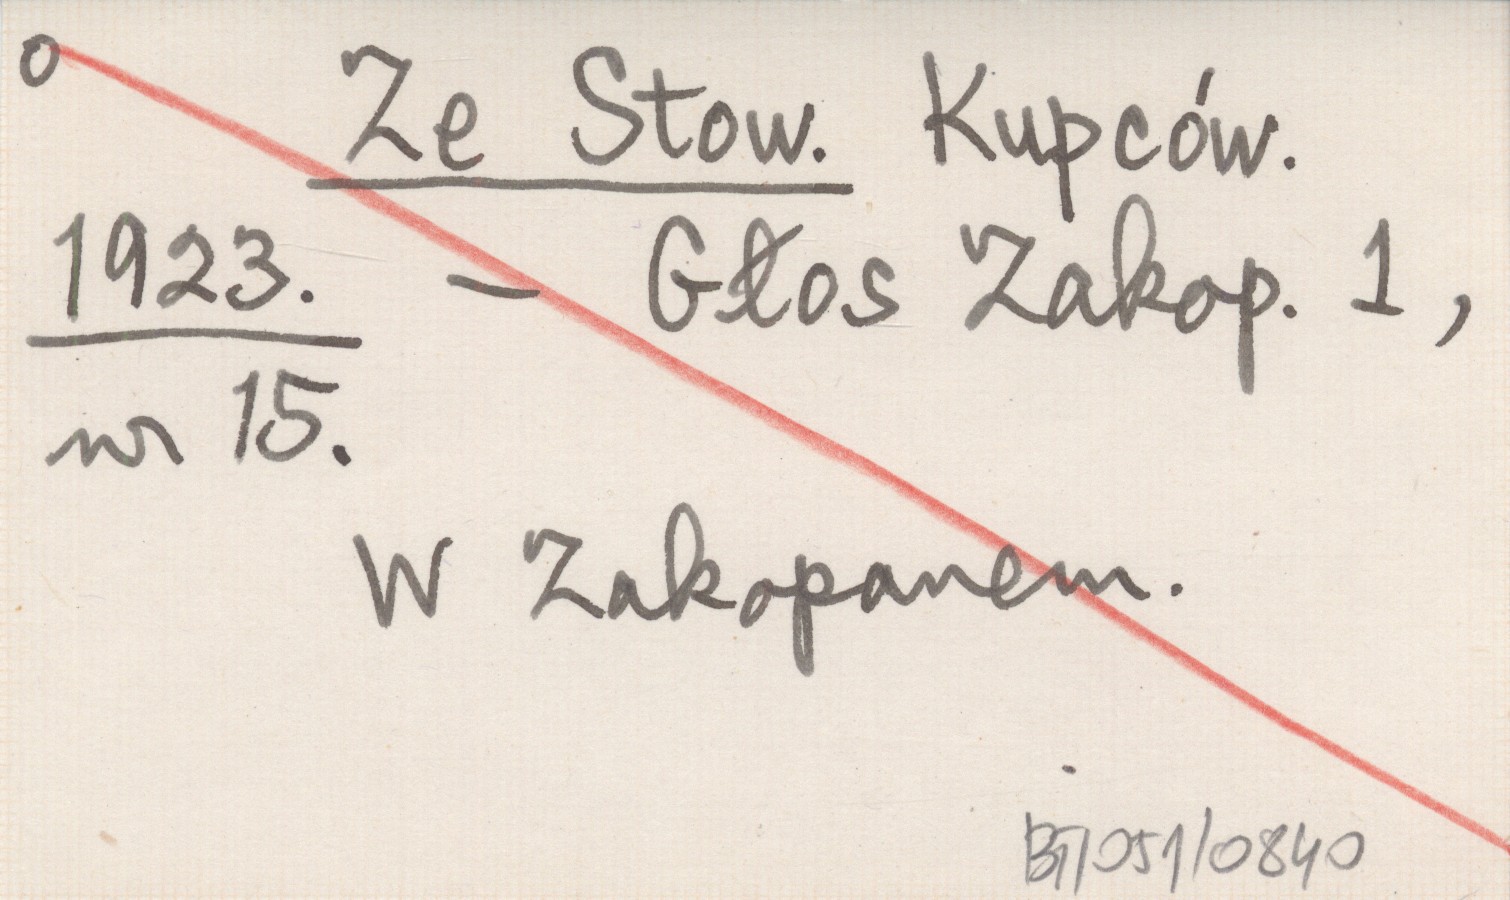 o Ze Stow. Kupców.
1923. – Głos Zakop. 1,
nr 15.
W Zakopanem.
BT/051/0840